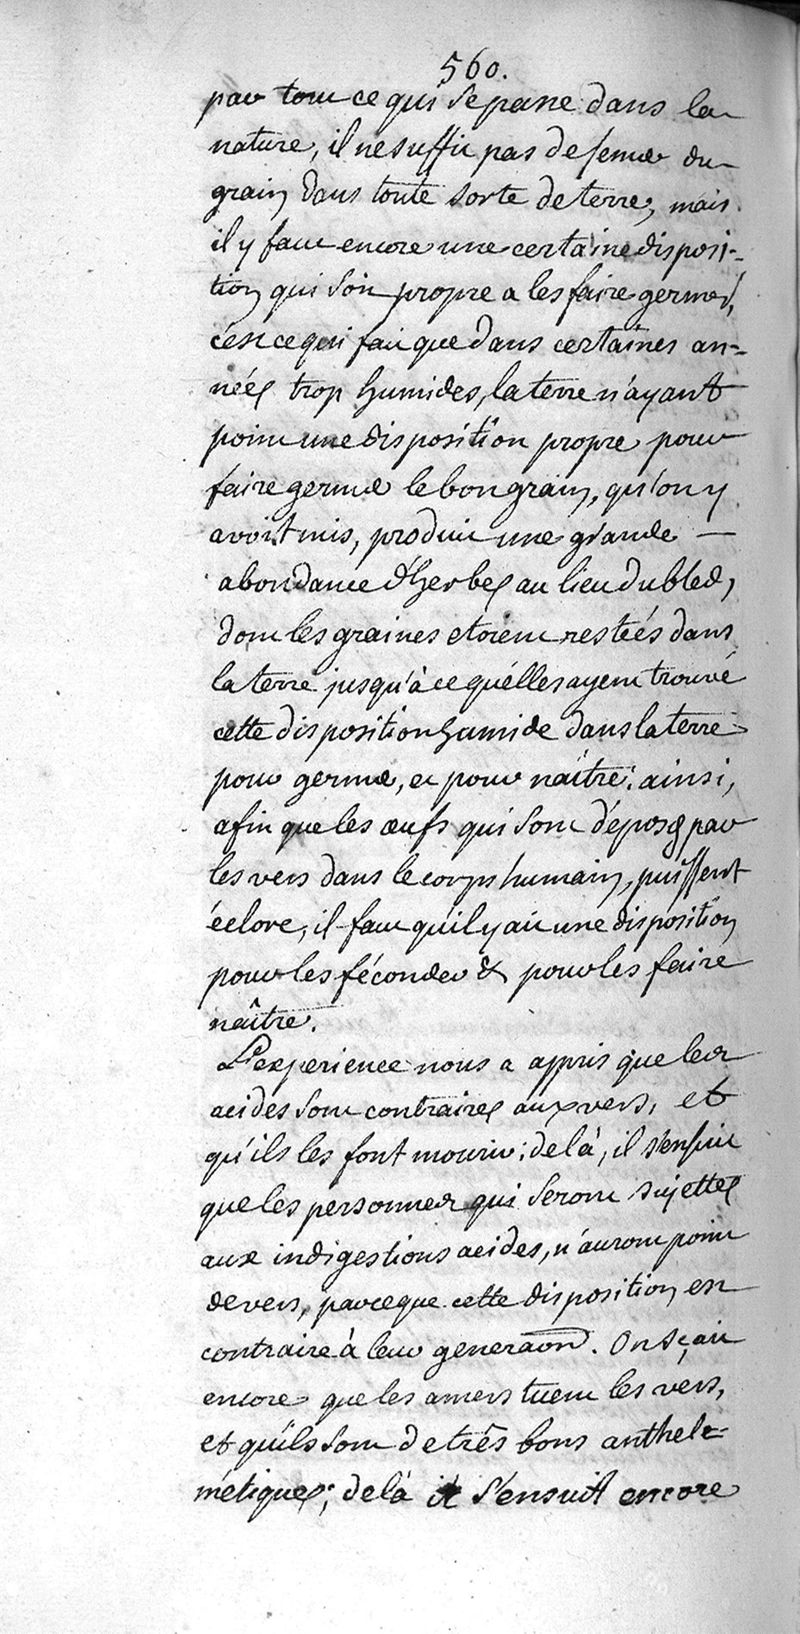 560.
par tout ce qui se passe dans la
nature, il ne suffit pas de semer du
grain dans toute sorte de terre, mais
il y faut encore une certaine disposi-
tion qui soit propre a les faire germer,
c'est ce qui fait que dans certaines an-
nées trop humides, la terre n'ayant
point une disposition propre pour
faire germer le bon grain, qu'on y
avoit mis, produit une grande
abondance d'herbes au lieu du bled,
dont les graines etoient restées dans
la terre jusqu'à ce qu'elles ayent trouvé
cette disposition humide dans la terre
pour germer, et pour naître: ainsi,
afin que les œufs qui sont déposés par
les vers dans le corps humain, puissent
éclore, il faut qu'il y ait une disposition
pour les féconder & pour les faire
naître.
L'experience nous a appris que les
acides sont contraires aux vers, et
qu'ils les font mourir: delà, il s'ensuit
que les personnes qui seront sujettes
aux indigestions acides, n'auront point
de vers, parceque cette disposition est
contraire à leur generaon. On sçait
encore que les amers tuent les vers,
et qu'ils sont de très bons anthel-
métiques; delà il s'ensuit encore